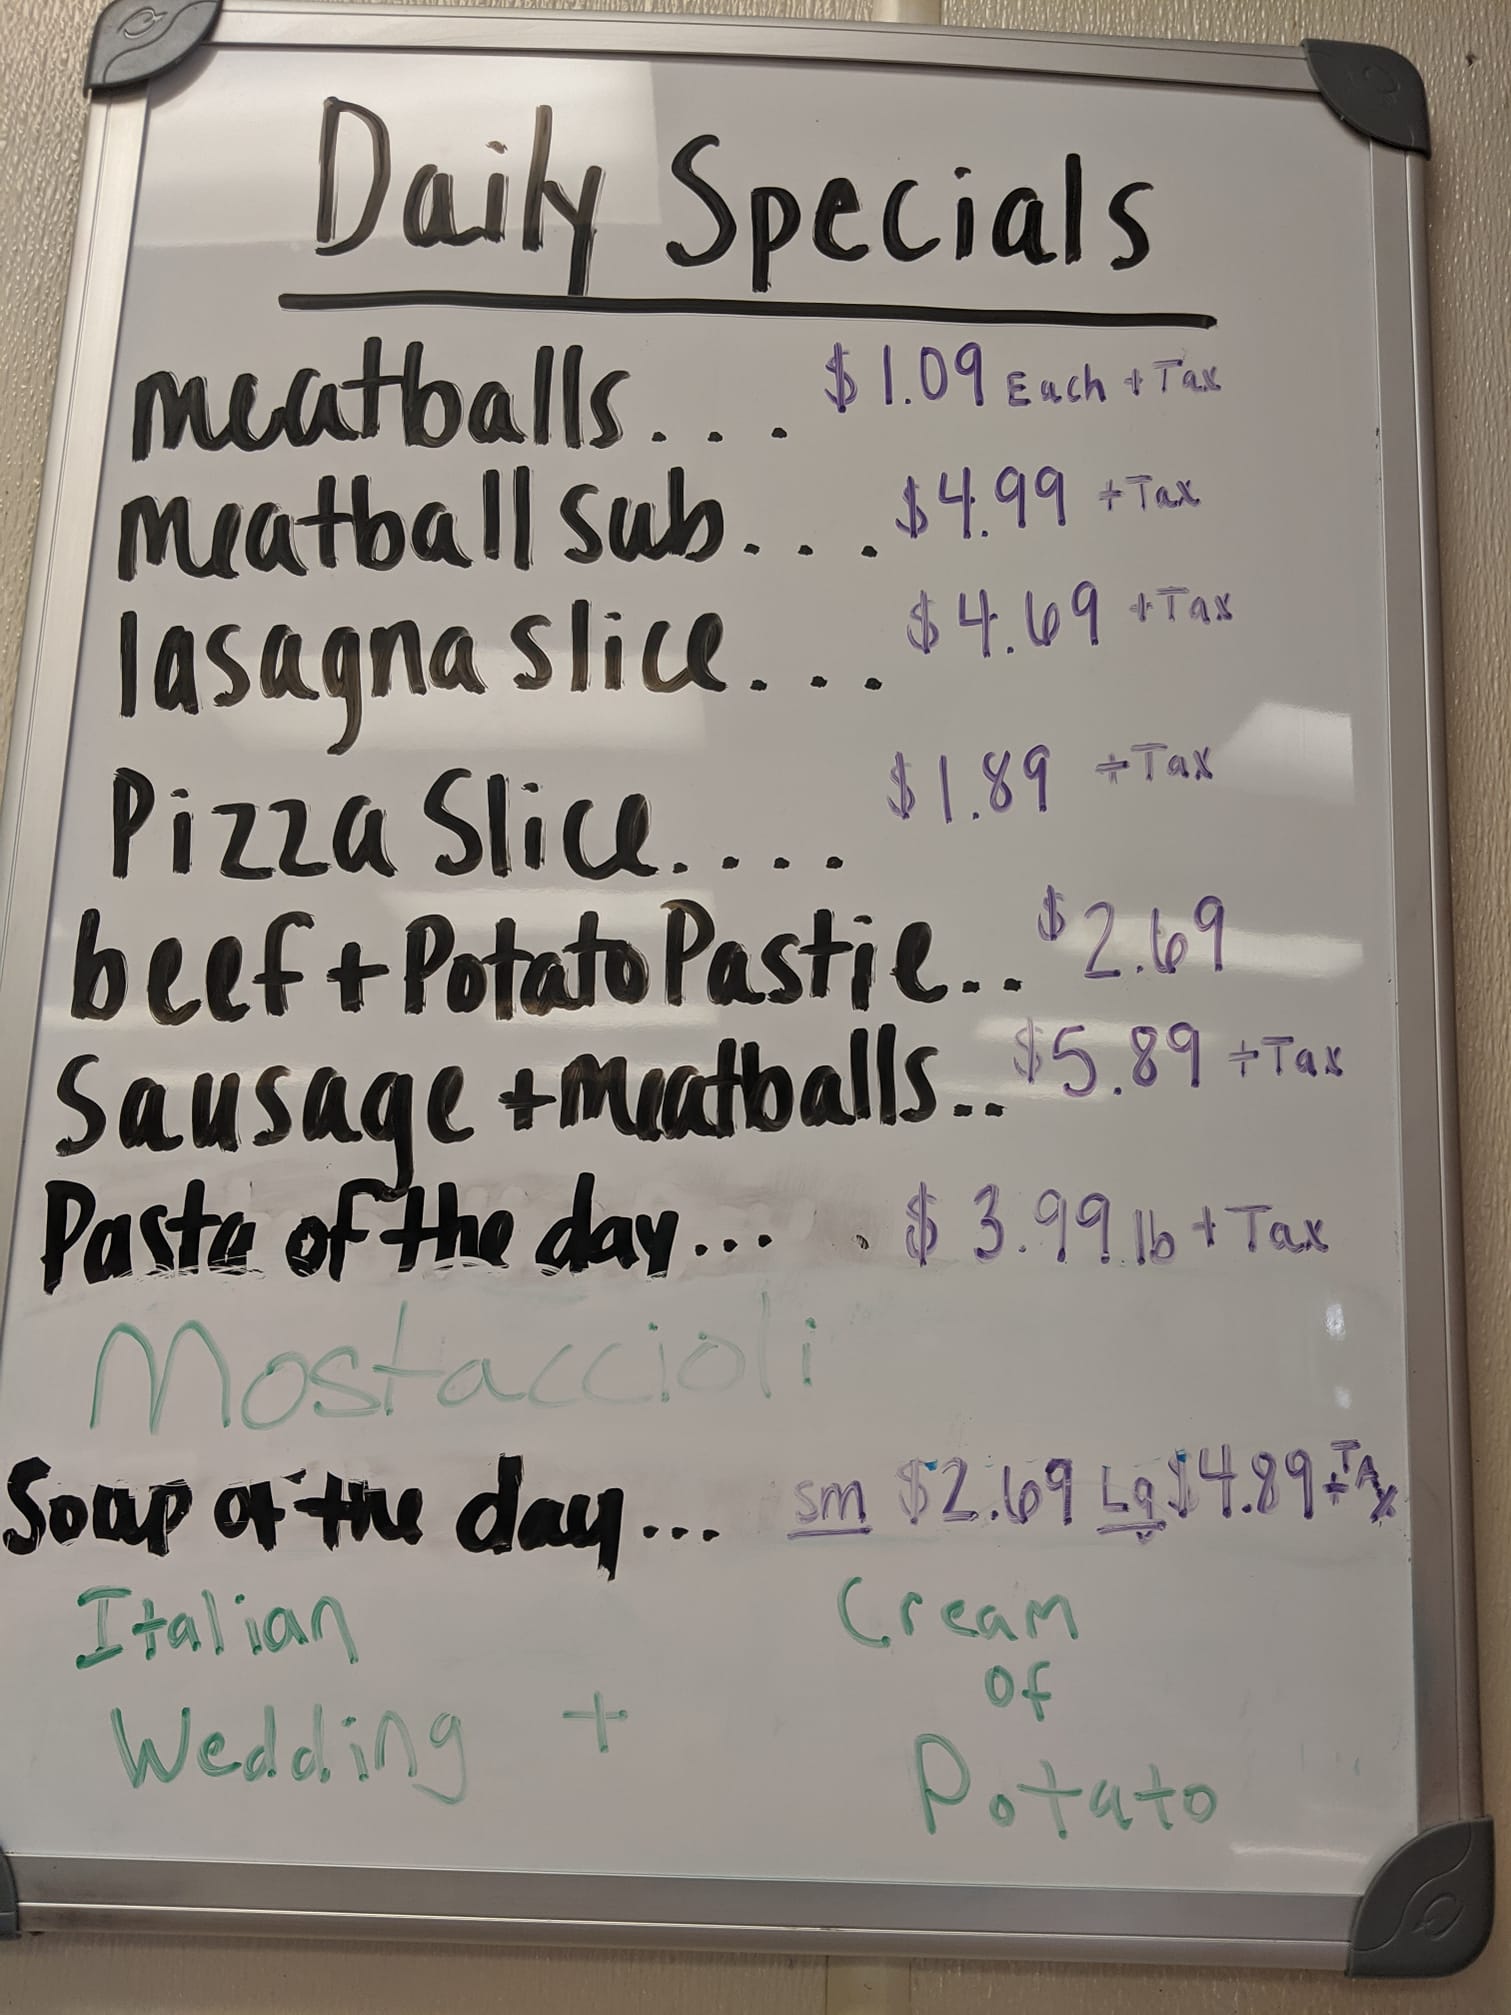 Daily Specials
meatballs... $1.09 Each + Tax
Meatball Sub... $4.99 + Tax
lasagna slice... $4.69 + Tax
Pizza Slice.... $1.89 + Tax
beef + Potato Pastie.. $2.69
Sausage + Meatballs... $5.89 + Tax
Pasta of the day... . $3.99 lb + Tax
Mostaccioli
Soup of the day... sm $2.69 Lg $4.89 + TAx
Italian Cream
of
Wedding + Potato